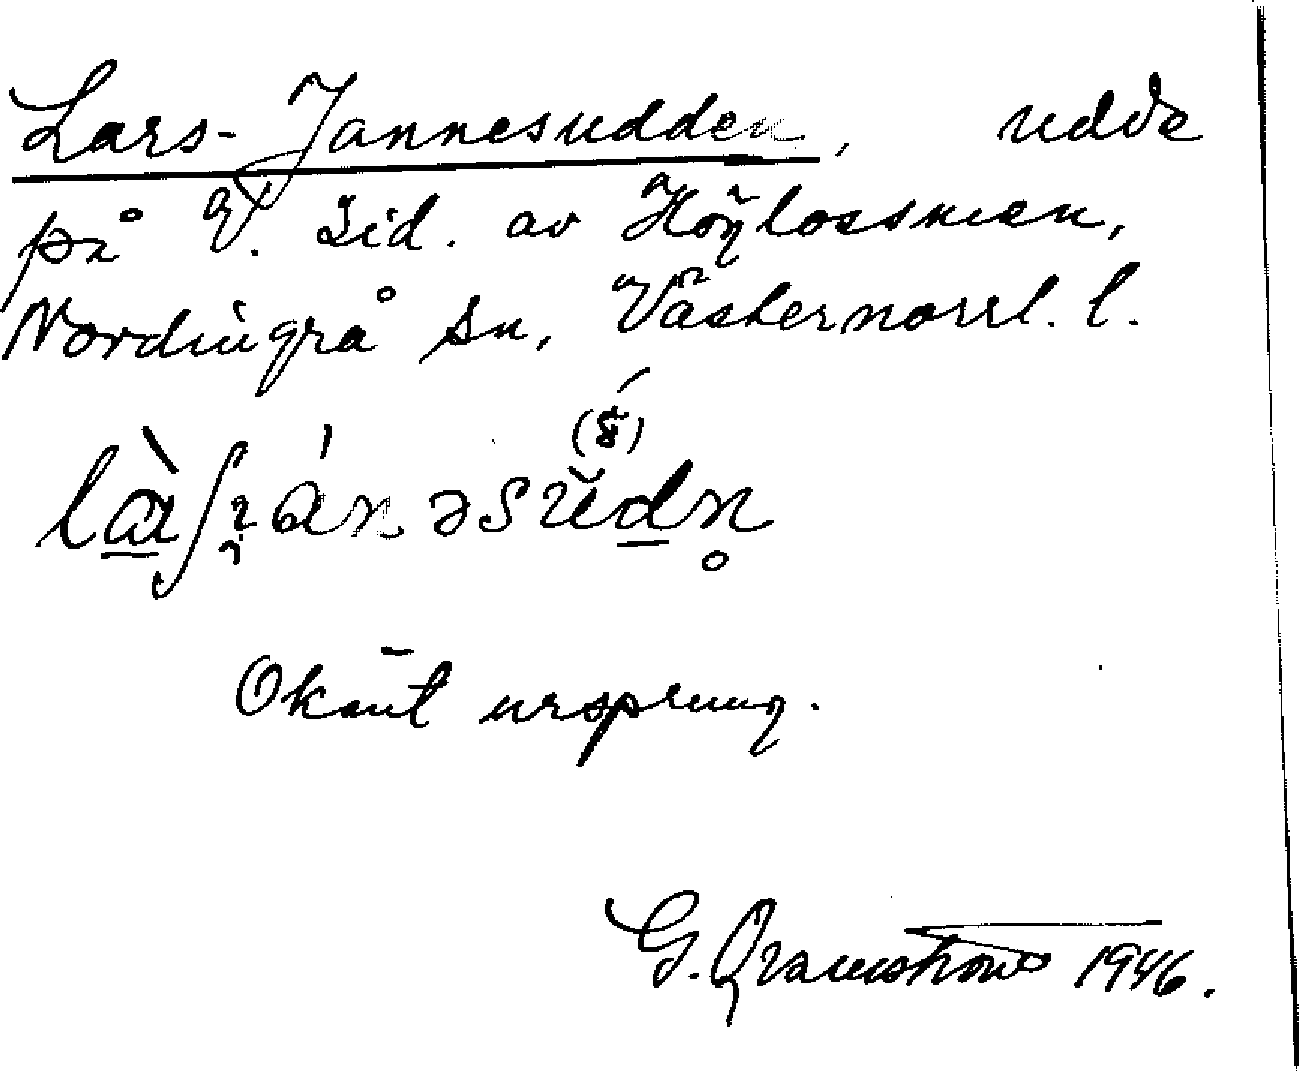 Lars-Jannesudden, udde
på V. sid. av
Nordingrå sn, Västernorrl. l.
Okänt ursprung.
G. 1946.